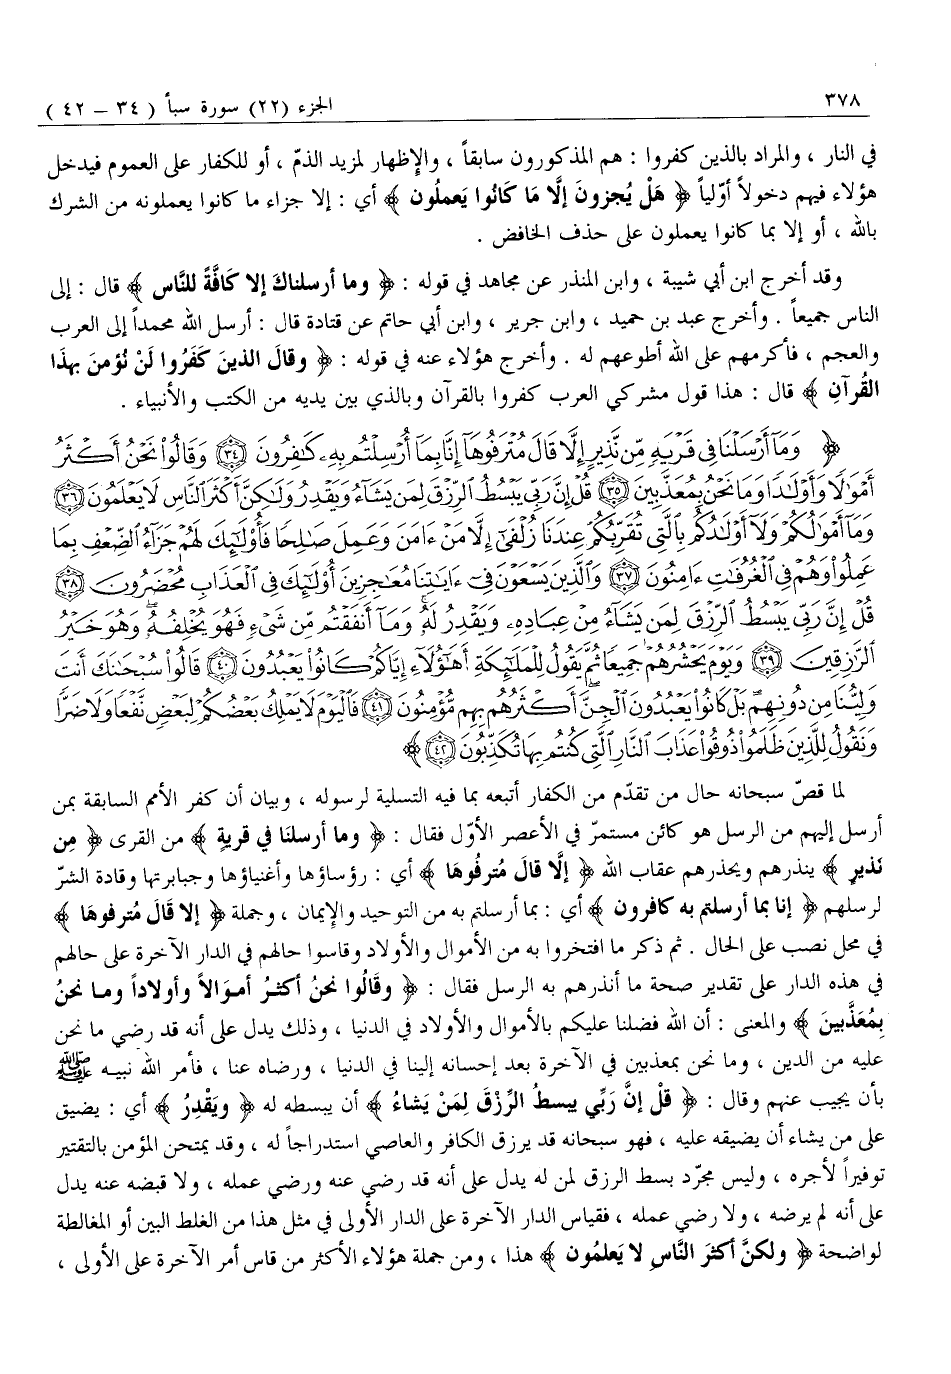 ٣٧٨ الجزء (٢٢) سورة سبأ ( ٣٤ – ٤٢ )
في النار ، والمراد بالذين كفروا : هم المذكورون سابقاً ، والإظهار لمزيد الذمّ ، أو للكفار على العموم فيدخل
هؤلاء فيهم دخولاً أوّلياً ﴿ هَلْ يُجزونَ إلَّا مَا كَانُوا يَعملُون ﴾ أي : إلا جزاء ما كانوا يعملونه من الشرك
بالله ، أو إلا بما كانوا يعملون على حذف الخافض .
وقد أخرج ابن أبي شيبة ، وابن المنذر عن مجاهد في قوله : ﴿ وما أرسلناكَ إلا كافَّةً للنَّاس ﴾ قال : إلى
الناس جميعاً . وأخرج عبد بن حميد ، وابن جرير ، وابن أبي حاتم عن قتادة قال : أرسل الله محمداً إلى العرب
والعجم ، فأكرمهم على الله أطوعهم له . وأخرج هؤلاء عنه في قوله : ﴿ وقالَ الذينَ كَفَرُوا لَنْ نُؤمنَ بهذَا
القُرآنِ ﴾ قال : هذا قول مشركي العرب كفروا بالقرآن وبالذي بين يديه من الكتب والأنبياء .
﴿ وَمَآ أَرْسَلْنَا فِي قَرْيَةٍ مِّن نَّذِيرٍ إِلَّا قَالَ مُتْرَفُوهَآ إِنَّا بِمَآ أُرْسِلْتُم بِهِۦ كَٰفِرُونَ ٣٤ وَقَالُوا۟ نَحْنُ أَكْثَرُ
أَمْوَٰلًا وَأَوْلَٰدًا وَمَا نَحْنُ بِمُعَذَّبِينَ ٣٥ قُلْ إِنَّ رَبِّي يَبْسُطُ الرِّزْقَ لِمَن يَشَآءُ وَيَقْدِرُ وَلَٰكِنَّ أَكْثَرَ النَّاسِ لَا يَعْلَمُونَ ٣٦
وَمَآ أَمْوَٰلُكُمْ وَلَآ أَوْلَٰدُكُم بِالَّتِي تُقَرِّبُكُمْ عِندَنَا زُلْفَىٰٓ إِلَّا مَنْ ءَامَنَ وَعَمِلَ صَٰلِحًا فَأُو۟لَٰٓئِكَ لَهُمْ جَزَآءُ الضِّعْفِ بِمَا
عَمِلُوا۟ وَهُمْ فِي الْغُرُفَٰتِ ءَامِنُونَ ٣٧ وَالَّذِينَ يَسْعَوْنَ فِيٓ ءَايَٰتِنَا مُعَٰجِزِينَ أُو۟لَٰٓئِكَ فِي الْعَذَابِ مُحْضَرُونَ ٣٨
قُلْ إِنَّ رَبِّي يَبْسُطُ الرِّزْقَ لِمَن يَشَآءُ مِنْ عِبَادِهِۦ وَيَقْدِرُ لَهُۥ وَمَآ أَنفَقْتُم مِّن شَيْءٍ فَهُوَ يُخْلِفُهُۥ وَهُوَ خَيْرُ
الرَّٰزِقِينَ ٣٩ وَيَوْمَ يَحْشُرُهُمْ جَمِيعًا ثُمَّ يَقُولُ لِلْمَلَٰٓئِكَةِ أَهَٰٓؤُلَآءِ إِيَّاكُمْ كَانُوا۟ يَعْبُدُونَ ٤٠ قَالُوا۟ سُبْحَٰنَكَ أَنتَ
وَلِيُّنَا مِن دُونِهِم بَلْ كَانُوا۟ يَعْبُدُونَ الْجِنَّ أَكْثَرُهُم بِهِم مُّؤْمِنُونَ ٤١ فَالْيَوْمَ لَا يَمْلِكُ بَعْضُكُمْ لِبَعْضٍ نَّفْعًا وَلَا ضَرًّا
وَنَقُولُ لِلَّذِينَ ظَلَمُوا۟ ذُوقُوا۟ عَذَابَ النَّارِ الَّتِي كُنتُم بِهَا تُكَذِّبُونَ ٤٢ ﴾
لما قصّ سبحانه حال من تقدّم من الكفار أتبعه بما فيه التسلية لرسوله ، وبيان أن كفر الأمم السابقة بمن
أرسل إليهم من الرسل هو كائن مستمرّ في الأعصر الأوّل فقال : ﴿ وما أرسلنَا في قريةٍ ﴾ من القرى ﴿ مِن
نَذيرٍ ﴾ ينذرهم ويحذرهم عقاب الله ﴿ إلَّا قالَ مُترفُوهَا ﴾ أي : رؤساؤها وأغنياؤها وجبابرتها وقادة الشرّ
لرسلهم ﴿ إنا بما أرسلتم به كافرون ﴾ أي : بما أرسلتم به من التوحيد والإيمان ، وجملة ﴿ إلا قالَ مُترفوهَا ﴾
في محل نصب على الحال . ثم ذكر ما افتخروا به من الأموال والأولاد وقاسوا حالهم في الدار الآخرة على حالهم
في هذه الدار على تقدير صحة ما أنذرهم به الرسل فقال : ﴿ وقَالُوا نحنُ أكثـرُ أمـوَالاً وأولاداً ومـا نحنُ
بِمُعَذَّبينَ ﴾ والمعنى : أن الله فضلنا عليكم بالأموال والأولاد في الدنيا ، وذلك يدل على أنه قد رضي ما نحن
عليه من الدين ، وما نحن بمعذبين في الآخرة بعد إحسانه إلينا في الدنيا ، ورضاه عنا ، فأمر الله نبيـه ﷺ
بأن يجيب عنهم وقال : ﴿ قلْ إنَّ رَبِّي يبسطُ الرِّزْقَ لِمَنْ يَشاءُ ﴾ أن يبسطه له ﴿ ويَقْدِرُ ﴾ أي : يضيق
على من يشاء أن يضيقه عليه ، فهو سبحانه قد يرزق الكافر والعاصي استدراجاً له ، وقد يمتحن المؤمن بالتقتير
توفيراً لأجره ، وليس مجرّد بسط الرزق لمن له يدل على أنه قد رضي عنه ورضي عمله ، ولا قبضه عنه يدل
على أنه لم يرضه ، ولا رضي عمله ، فقياس الدار الآخرة على الدار الأولى في مثل هذا من الغلط البين أو المغالطة
لواضحة ﴿ ولكنَّ أكثرَ النَّاسِ لا يَعلمُون ﴾ هذا ، ومن جملة هؤلاء الأكثر من قاس أمر الآخرة على الأولى ،